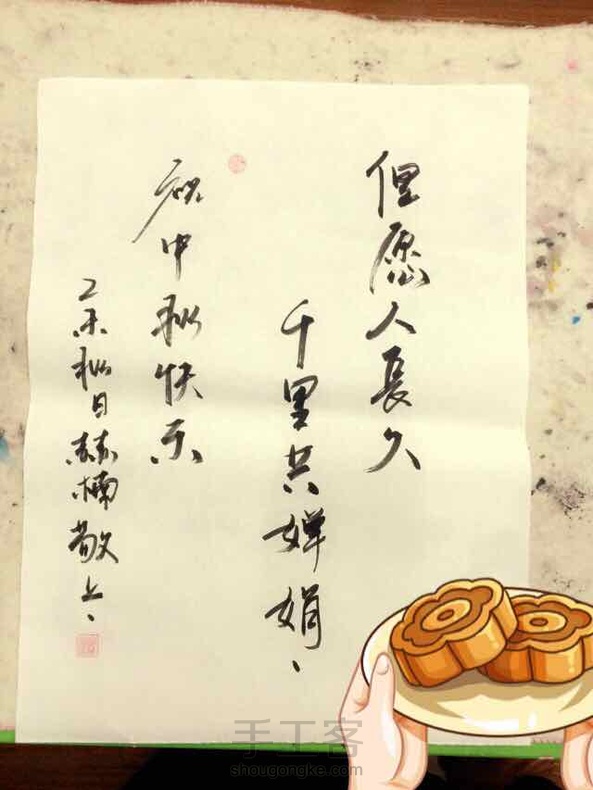 但愿人長久
千里共婵娟、
祝中秋快乐
乙未秋日赫楠敬上、
手工客
shougongke.com